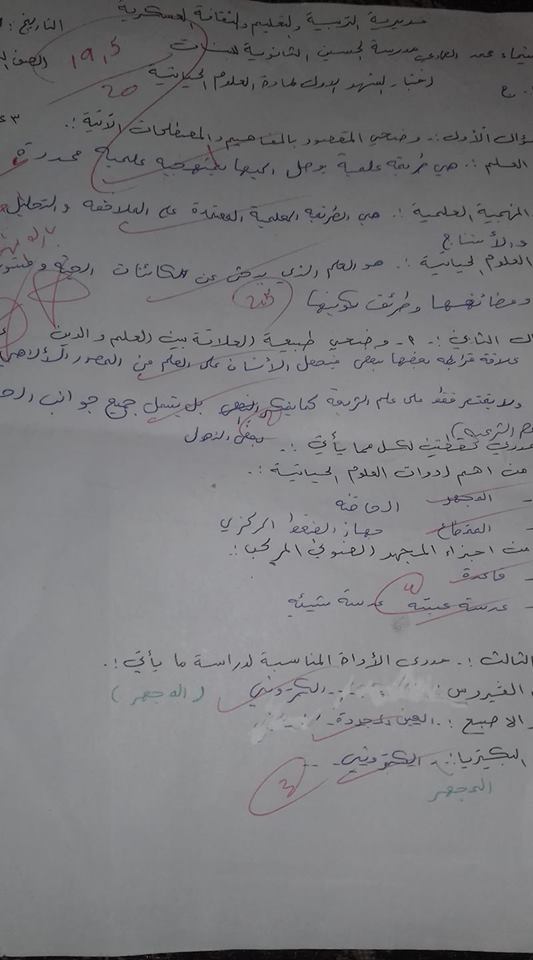 مديرية التربية والتعليم والثقافة العسكرية
التاريخ :
مدرسة الحسين الثانوية للبنات
الصف
19,5
20
اختبار الشهر الاول لمادة العلوم الحياتية
ؤال الأول :- وضحي المقصود بالمفاهيم والمصطلحات الآتية :.
العلم :. هي طريقة علمية يوصل اليها بمنهجية علمية محددة
المنهجية العلمية :. هي الطريقة العلمية المعتمدة على الملاحظه والتحليل
والأستنتاج
العلوم الحياتية :. هو العلم الذي يبحث عن الكائنات الحية
ووظائفها وطرائق تكوينها
2,5
ال الثاني :- ٢- وضحي طبيعة العلاقة بين العلم والدين
علاقة مترابطه بعضها ببعض فيحصل الأنسان على العلم من المصدر الألاهي
ولا يقتصر فقط على علم الشريعة كما يفهم البعض بل يشمل جميع جوانب
بعض الدول
عددي نقطتين لكل مما يأتي :.
من اهم ادوات العلوم الحياتية :.
- المجهر الحاضنه
جهاز الضغط المركزي
من اجزاء المجهر الضوئي المركب :.
- قاعدة
- عدسة عينيه عدسة شيئيه
4
الثالث :. حددي الأداة المناسبة لدراسة ما يأتي :.
الفيروس : الكتروني (المجهر)
الاصبع :. العين المجردة
البكتيريا :. الكتروني
3
المجهر